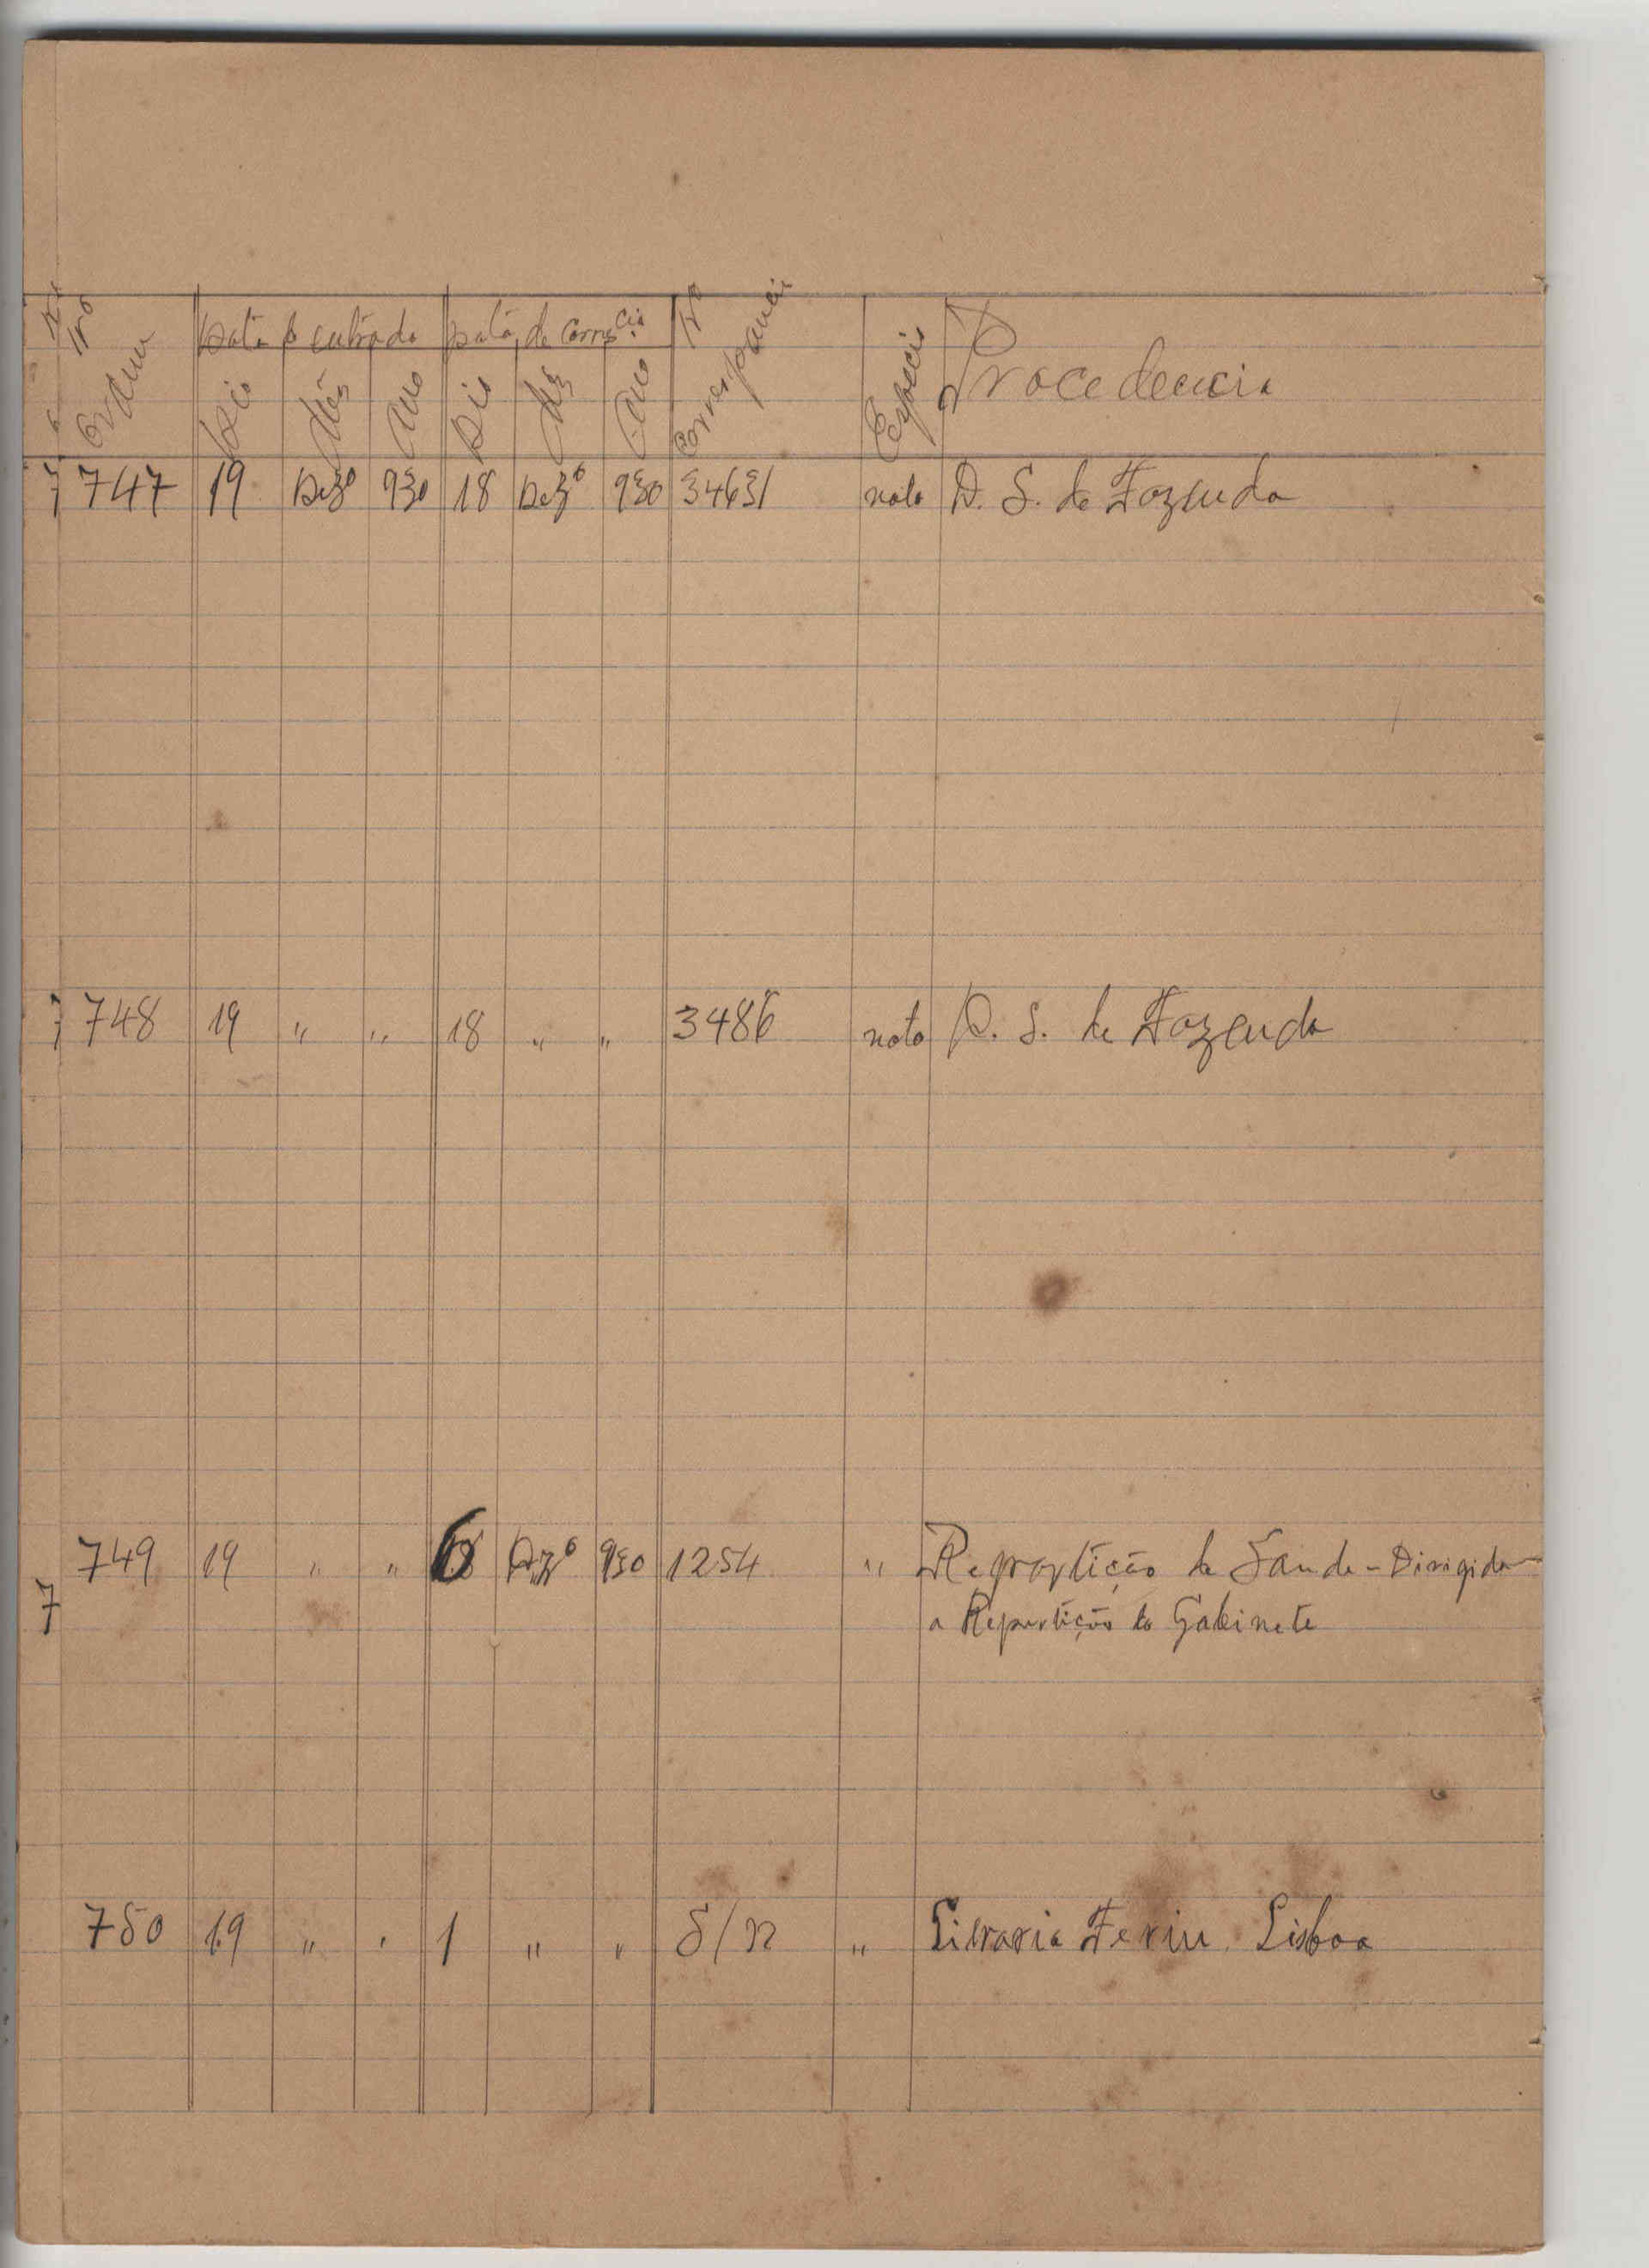 Nº Ordem Data de entrada Data de Corresp.cia Nº Correspondencia Especie Procedencia
Dia Mês Ano Dia Mês Ano
747 19 Dezº 930 18 Dezº 930 34631 nota D. S. de Fazenda
748 19 " " 18 " " 3486 nota D. S. de Fazenda
749 19 " " 6 Dezº 930 1254 " Reprartição de Saude - Dirigida
a Repartição do Gabinete
7
750 19 " " 1 " " S/N " Livraria Ferin Lisboa